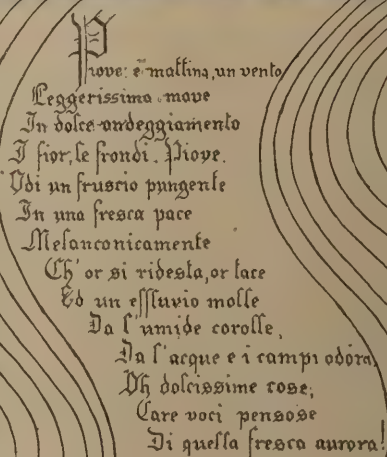 Piove: è mattina, un vento
Leggerissimo move
In dolce ondeggiamento
I fior, le frondi. Piove.
Odi un fruscio pungente
In una fresca pace
Melanconicamente
Ch' or si ridesta, or tace
Ed un effluvio molle
Da l'umide corolle,
Da l'acque e i campi odora,
Oh dolcissime cose,
Care voci pensose
Di quella fresca aurora!